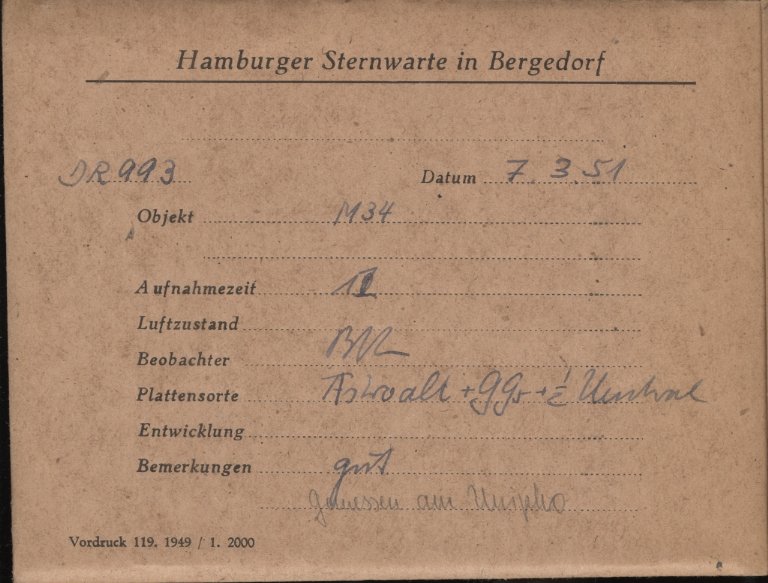 Hamburger Sternwarte in Bergedorf
DR 993 Datum 7. 3. 51
Objekt M34
Aufnahmezeit
Luftzustand
Beobachter
Plattensorte + GG +
Entwicklung
Bemerkungen gut
gemessen am
Vordruck 119. 1949 / 1. 2000